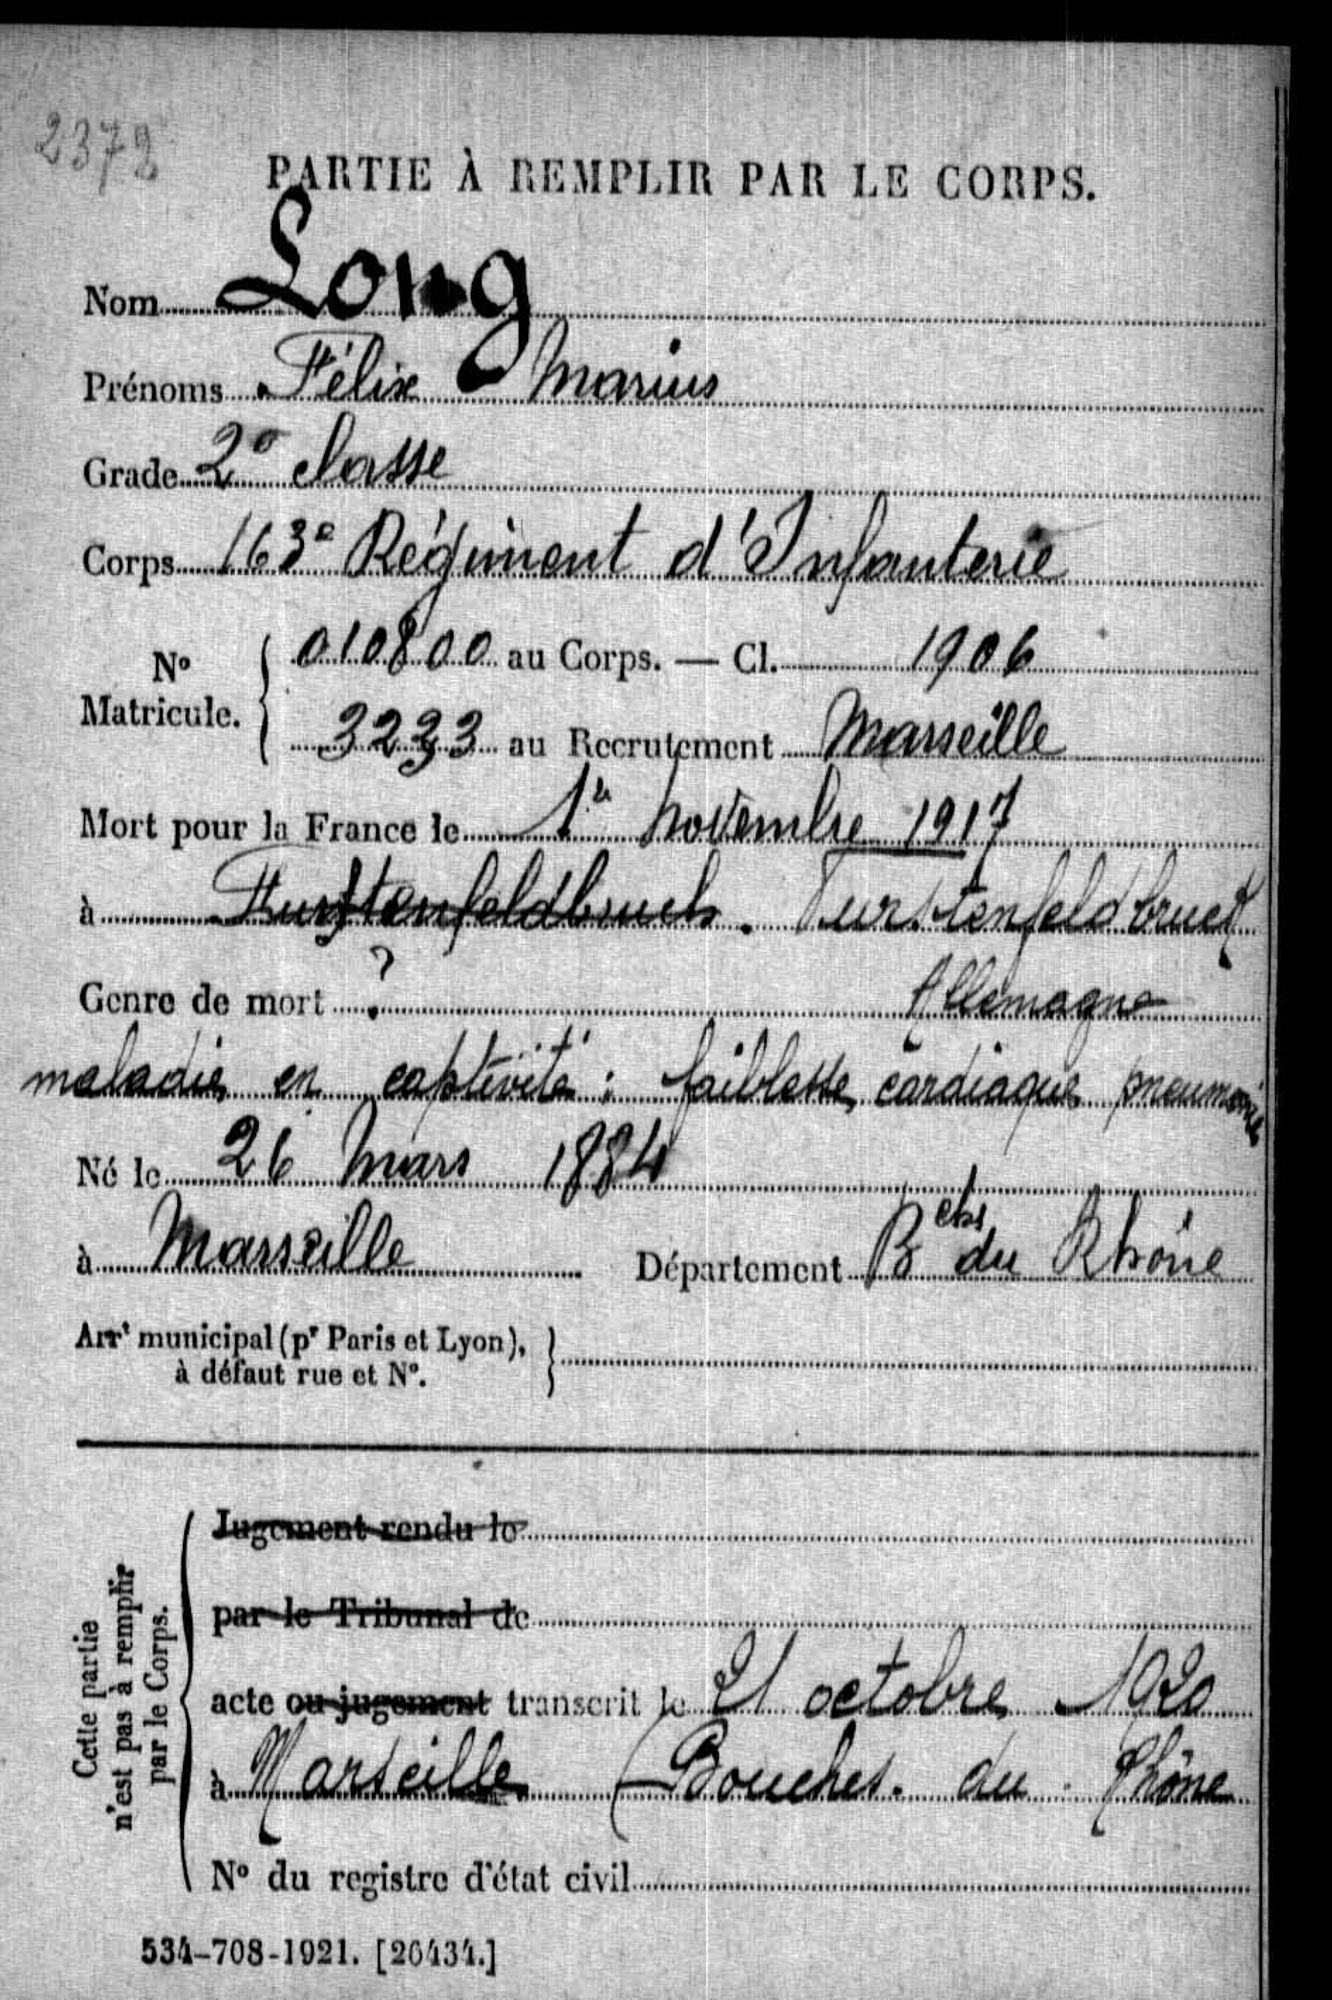 2372
PARTIE À REMPLIR PAR LE CORPS.
Nom Long
Prénoms Félix Marius
Grade 2e classe
Corps 163e Régiment d'Infanterie
No Matricule. { 010800 au Corps. — Cl. 1906
3233 au Recrutement Marseille
Mort pour la France le 1er novembre 1917
à Furstenfeldbruch. Furstenfeldbruck
Allemagne
Genre de mort ?
maladie en captivité : faiblesse cardiaque pneumonie
Né le 26 Mars 1884
à Marseille Département Bches du Rhône
Arrt municipal (pr Paris et Lyon),
à défaut rue et No. }
Cette partie
n'est pas à remplir
par le Corps.
Jugement rendu le
par le Tribunal de
acte ou jugement transcrit le 21 octobre 1920
à Marseille (Bouches. du Rhône
No du registre d'état civil
534-708-1921. [26434.]